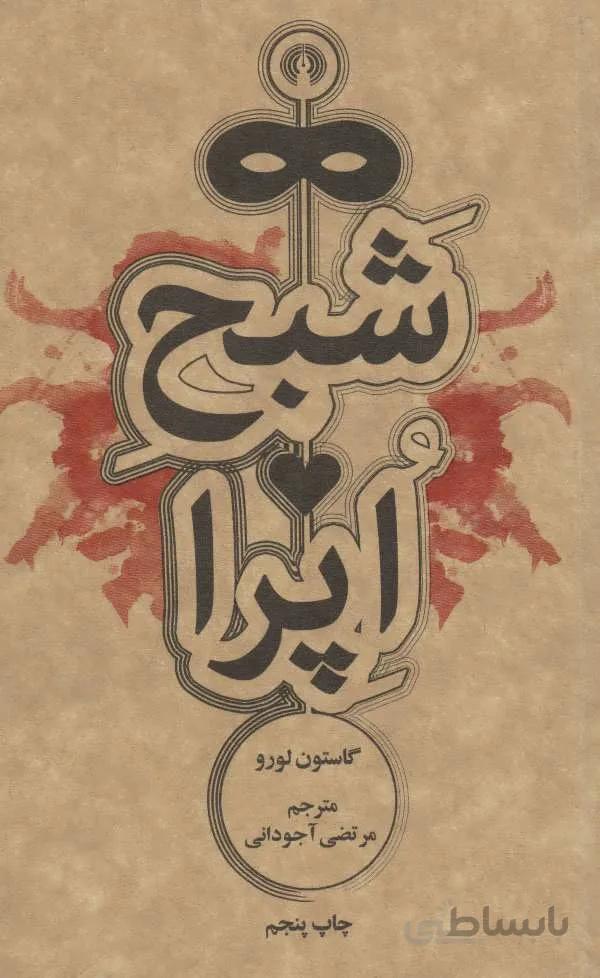 شَبح
اُپرا
گاستون لورو
مترجم
مرتضی آجودانی
چاپ پنجم
بابساطی